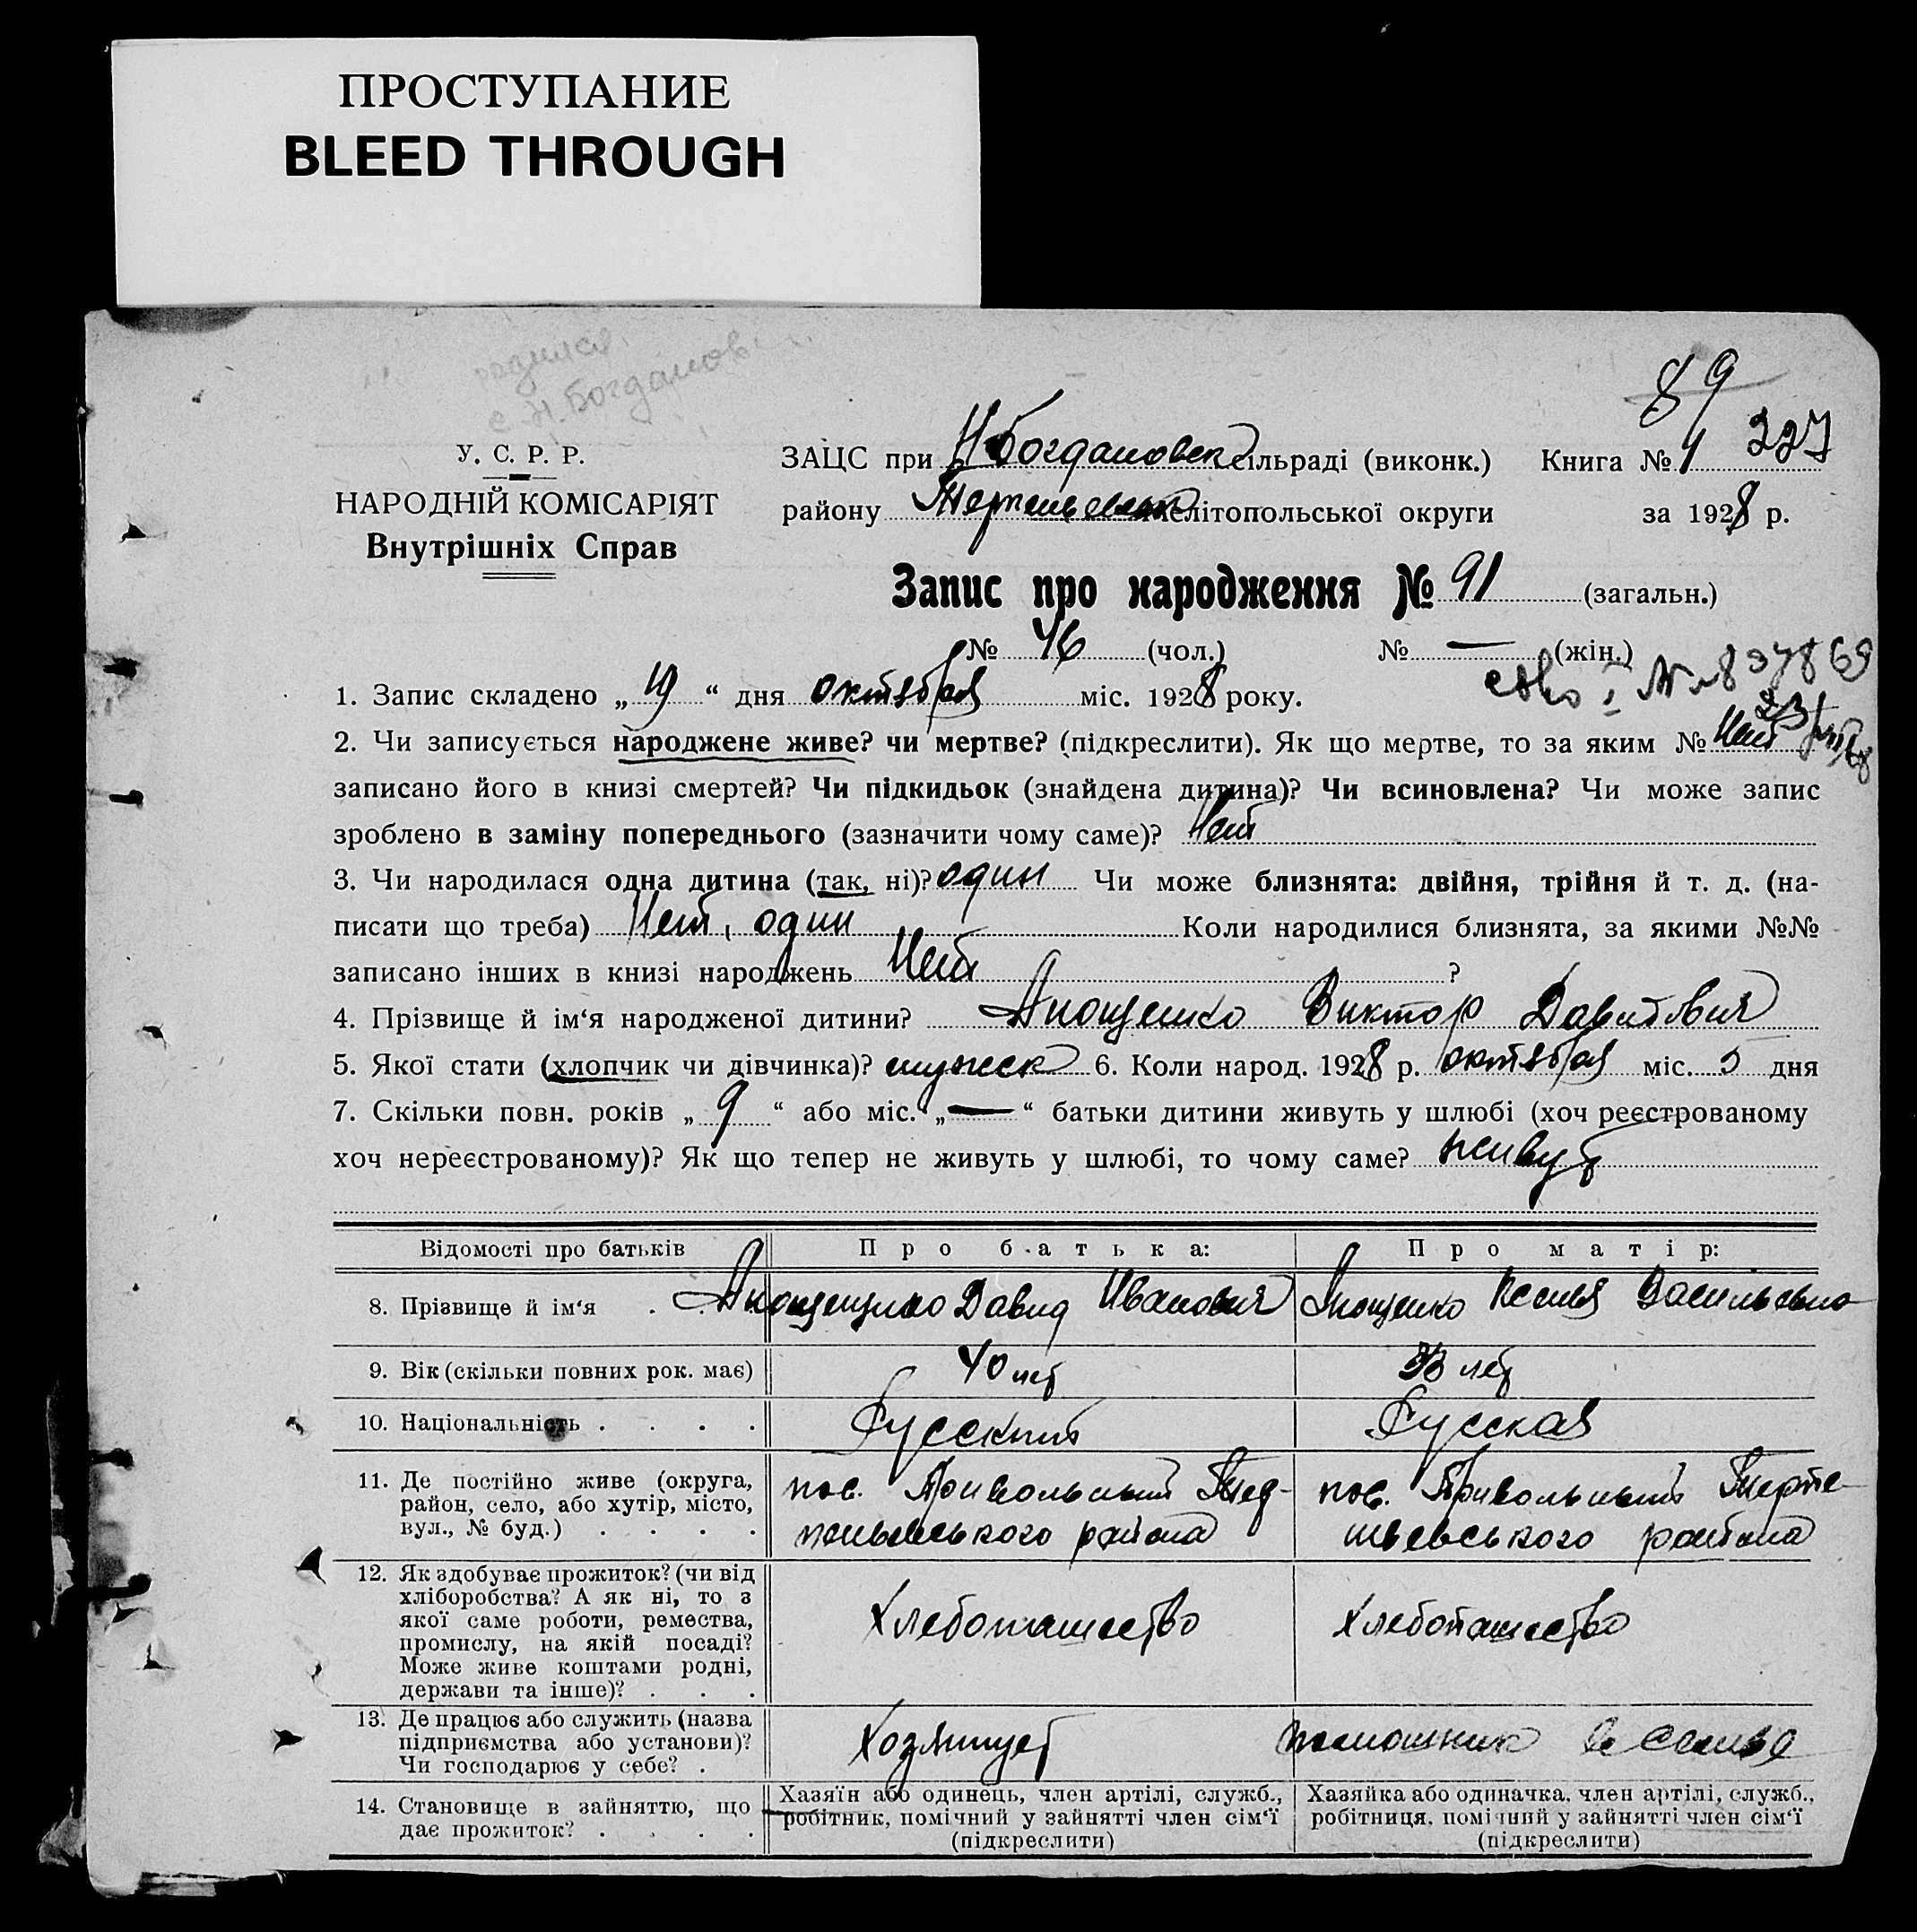 ПРОСТУПАНИЕ
BLEED THROUGH
родился
с. Н. Богдановк
89
У. С. Р. Р.
НАРОДНІЙ КОМІСАРІЯТ
Внутрішніх Справ
ЗАЦС при Н Богдановск сільраді (виконк.) Книга № 1 227
району Терпеньевск Мелітопольської округи за 1928 р.
Запис про народження № 91 (загальн.)
№ 46 (чол.) № — (жін.)
1. Запис складено „ 19 “ дня октября міс. 1928 року.
2. Чи записується народжене живе? чи мертве? (підкреслити). Як що мертве, то за яким № Нет
записано його в книзі смертей? Чи підкидьок (знайдена дитина)? Чи всиновлена? Чи може запис
зроблено в заміну попереднього (зазначити чому саме)? Нет
3. Чи народилася одна дитина (так, ні)? один Чи може близнята: двійня, трійня й т. д. (на-
писати що треба) Нет, один Коли народилися близнята, за якими №№
записано інших в книзі народжень Нет ?
4. Прізвище й ім‘я народженої дитини? Анощенко Виктор Давидович
5. Якої стати (хлопчик чи дівчинка)? мужск 6. Коли народ. 1928 р. октября міс. 5 дня
7. Скільки повн. років „ 9 “ або міс. „ — “ батьки дитини живуть у шлюбі (хоч реєстрованому
хоч нереєстрованому)? Як що тепер не живуть у шлюбі, то чому саме? живут
Відомості про батьків Про батька: Про матір:
8. Прізвище й ім‘я . . Анощенко Давид Иванович Анощенко Ксения Васильевна
9. Вік (скільки повних рок. має) 40 лет 33 лет
10. Національність . . . . Русский Русская
11. Де постійно живе (округа, район, село, або хутір, місто, вул., № буд.) . . . .
пос. Привольный Тер-
пеньевського района
пос. Привольный Терпе-
ньевського района
12. Як здобуває прожиток? (чи від хліборобства? А як ні, то з якої саме роботи, ремества, промислу, на якій посаді? Може живе коштами родні, держави та інше)? . . .
Хлебопашество Хлебопашество
13. Де працює або служить (назва підприємства або установи)? Чи господарює у себе? .
Хозяинует помошник в семье
14. Становище в зайняттю, що дає прожиток? . . . .
Хазяїн або одинець, член артілі, служб., робітник, помічний у зайнятті член сім‘ї (підкреслити)
Хазяйка або одиначка, член артілі, служб., робітниця, помічний у зайнятті член сім‘ї (підкреслити)